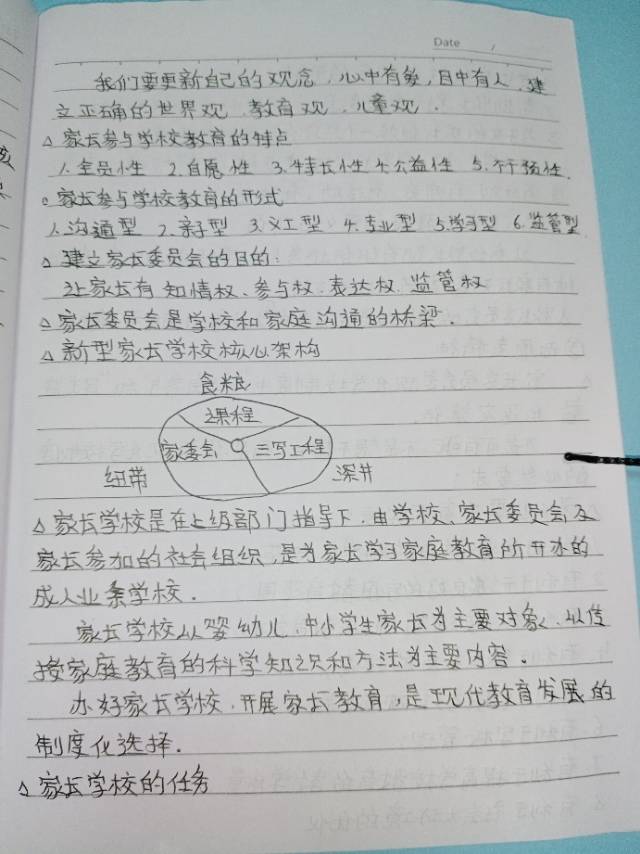 Date /
我们要更新自己的观念,心中有爱,目中有人,建
立正确的世界观、教育观、儿童观.
△家长参与学校教育的特点
1.全员性 2.自愿性 3.特长性 4.公益性 5.不干预性.
○家长参与学校教育的形式
1.沟通型 2.亲子型 3.义工型 4.专业型 5.学习型 6.监管型
△建立家长委员会的目的:
让家长有知情权、参与权、表达权、监管权
△家长委员会是学校和家庭沟通的桥梁.
△新型家长学校核心架构
食粮
课程
家委会 三写工程
纽带 深井
△家长学校是在上级部门指导下,由学校、家长委员会及
家长参加的社会组织,是为家长学习家庭教育所开办的
成人业余学校.
家长学校以婴幼儿、中小学生家长为主要对象,以传
授家庭教育的科学知识和方法为主要内容.
办好家长学校,开展家长教育,是现代教育发展的
制度化选择.
△家长学校的任务